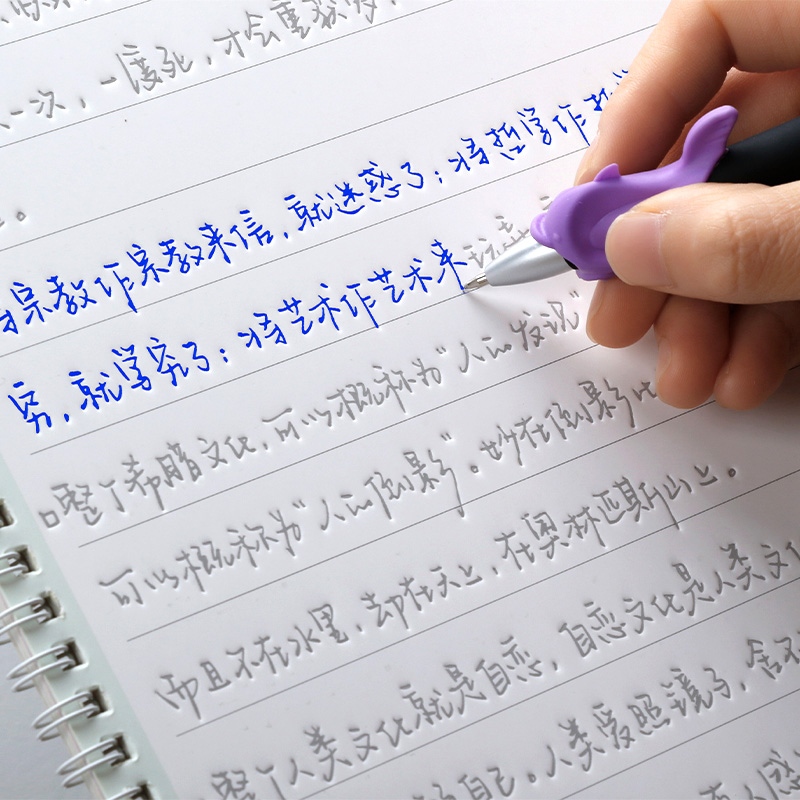 一次，一度死，才会重获
宗教作宗教来信，就迷惑了；将哲学作哲
穷，就学穷了；将艺术作艺术来玩弄
整个希腊文化，可以概称为“人的发现”
可以概称为“人的倒影”。妙在倒影
而且不在水里，却在天上，在奥林匹斯山上。
整个人类文化就是自恋，自恋文化是人类文
自己。人类爱照镜子，舍不